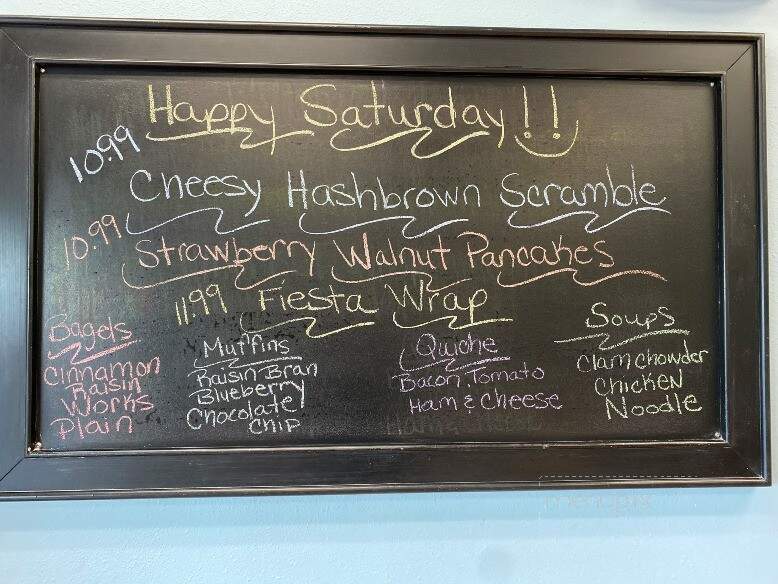 Happy Saturday!!
10.99
Cheesy Hashbrown Scramble
10.99
Strawberry Walnut Pancakes
11.99 Fiesta Wrap
Bagels
Cinnamon
Raisin
Works
Plain
Muffins
Raisin Bran
Blueberry
Chocolate
Chip
Quiche
Bacon, Tomato
Ham & Cheese
Soups
Clam Chowder
Chicken
Noodle